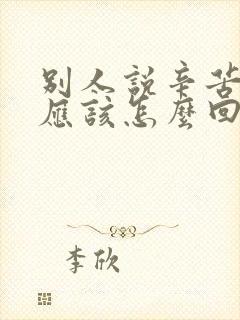 別人說辛苦
應該怎麼回
李欣